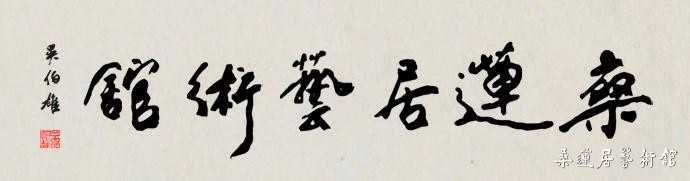 桑蓮居藝術館
吳伯雄
桑蓮居藝術館